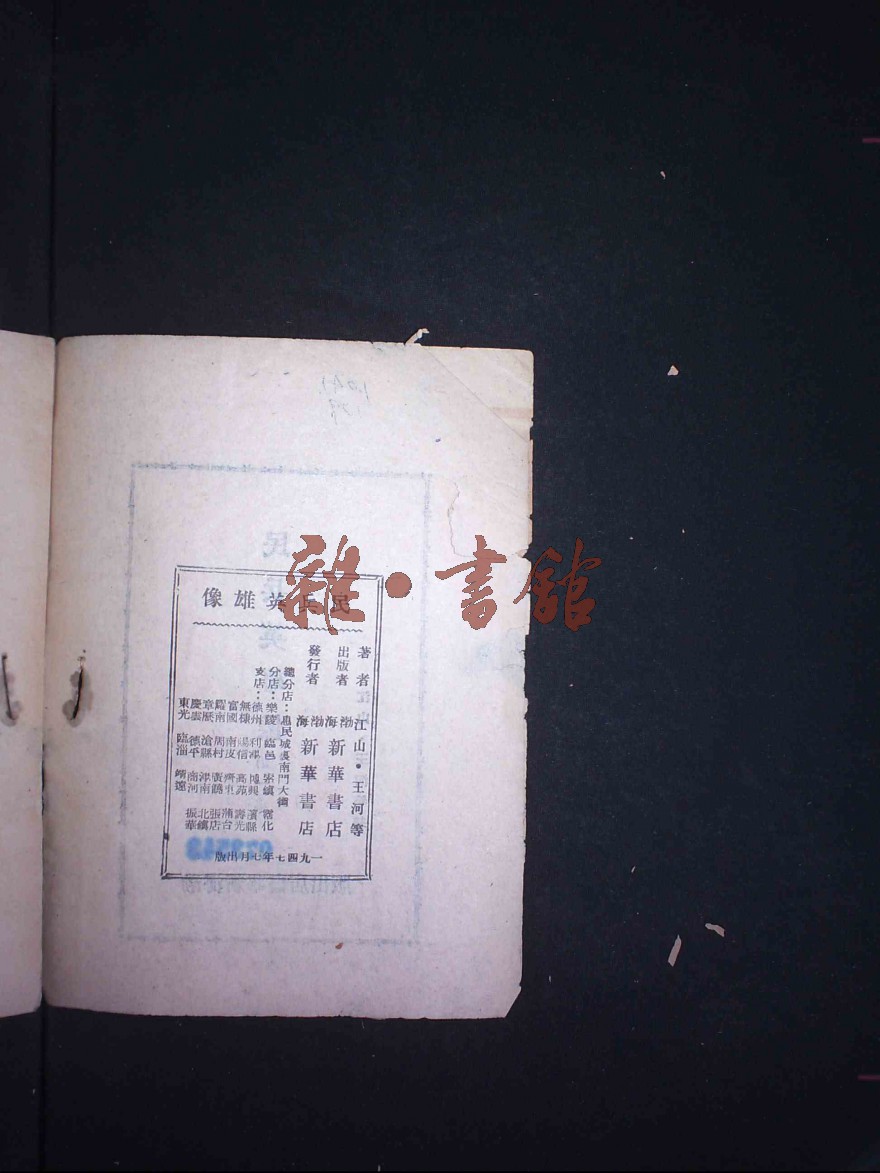 民兵英雄像
著者 江山·王河等
出版者 渤海新華書店
發行者 渤海新華書店
總分店：惠民城裏南門大街
分店：樂陵 臨邑
支店：德州 利津
無棣 陽信 高苑 壽光
富國 南皮 齊東 蒲台
耀南 周村 廣饒 張店
章歷 滄縣 津南 北鎮
慶雲 德平 南河 振華
東光 臨淄 靖遠
一九四七年七月出版
雜·書館